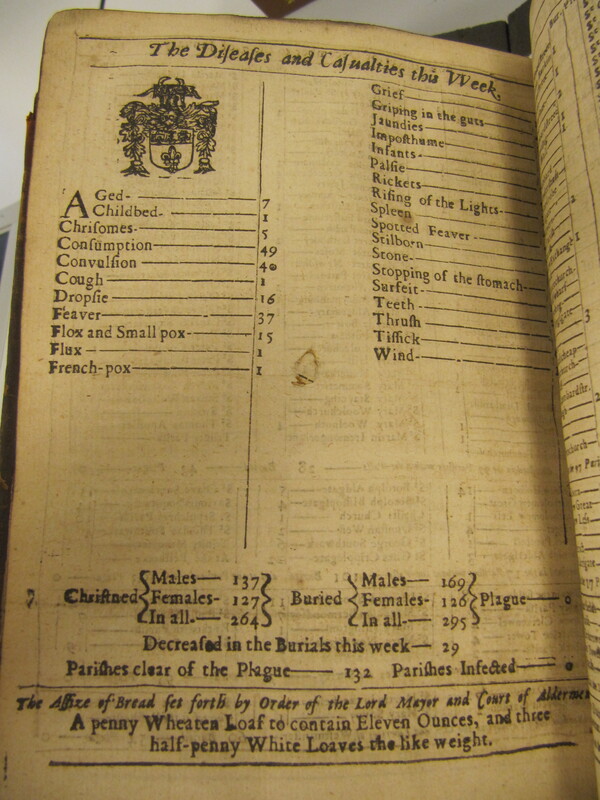 The Diſeaſes and Caſualties this VVeek.
AGed- 7
Childbed- 1
Chriſomes- 5
Conſumption 49
Convulſion 40
Cough 1
Dropſie 16
Feaver 37
Flox and Small pox- 15
Flux 1
French-pox 1
Grief
Griping in the guts
Jaundies
Impoſthume
Infants
Palſie
Rickets
Riſing of the Lights
Spleen
Spotted Feaver
Stilborn
Stone
Stopping of the ſtomach
Surfeit
Teeth
Thruſh
Tiſſick
Wind
Chriſtned Males— 137 Buried Males— 169 Plague— 0
Females- 127 Females- 126
In all.— 264 In all.— 295
Decreaſed in the Burials this week— 29
Pariſhes clear of the Plague— 132 Pariſhes Infected— 0
The Aſſize of Bread ſet forth by Order of the Lord Mayor and Court of Aldermen
A penny Wheaten Loaf to contain Eleven Ounces, and three
half-penny White Loaves the like weight.